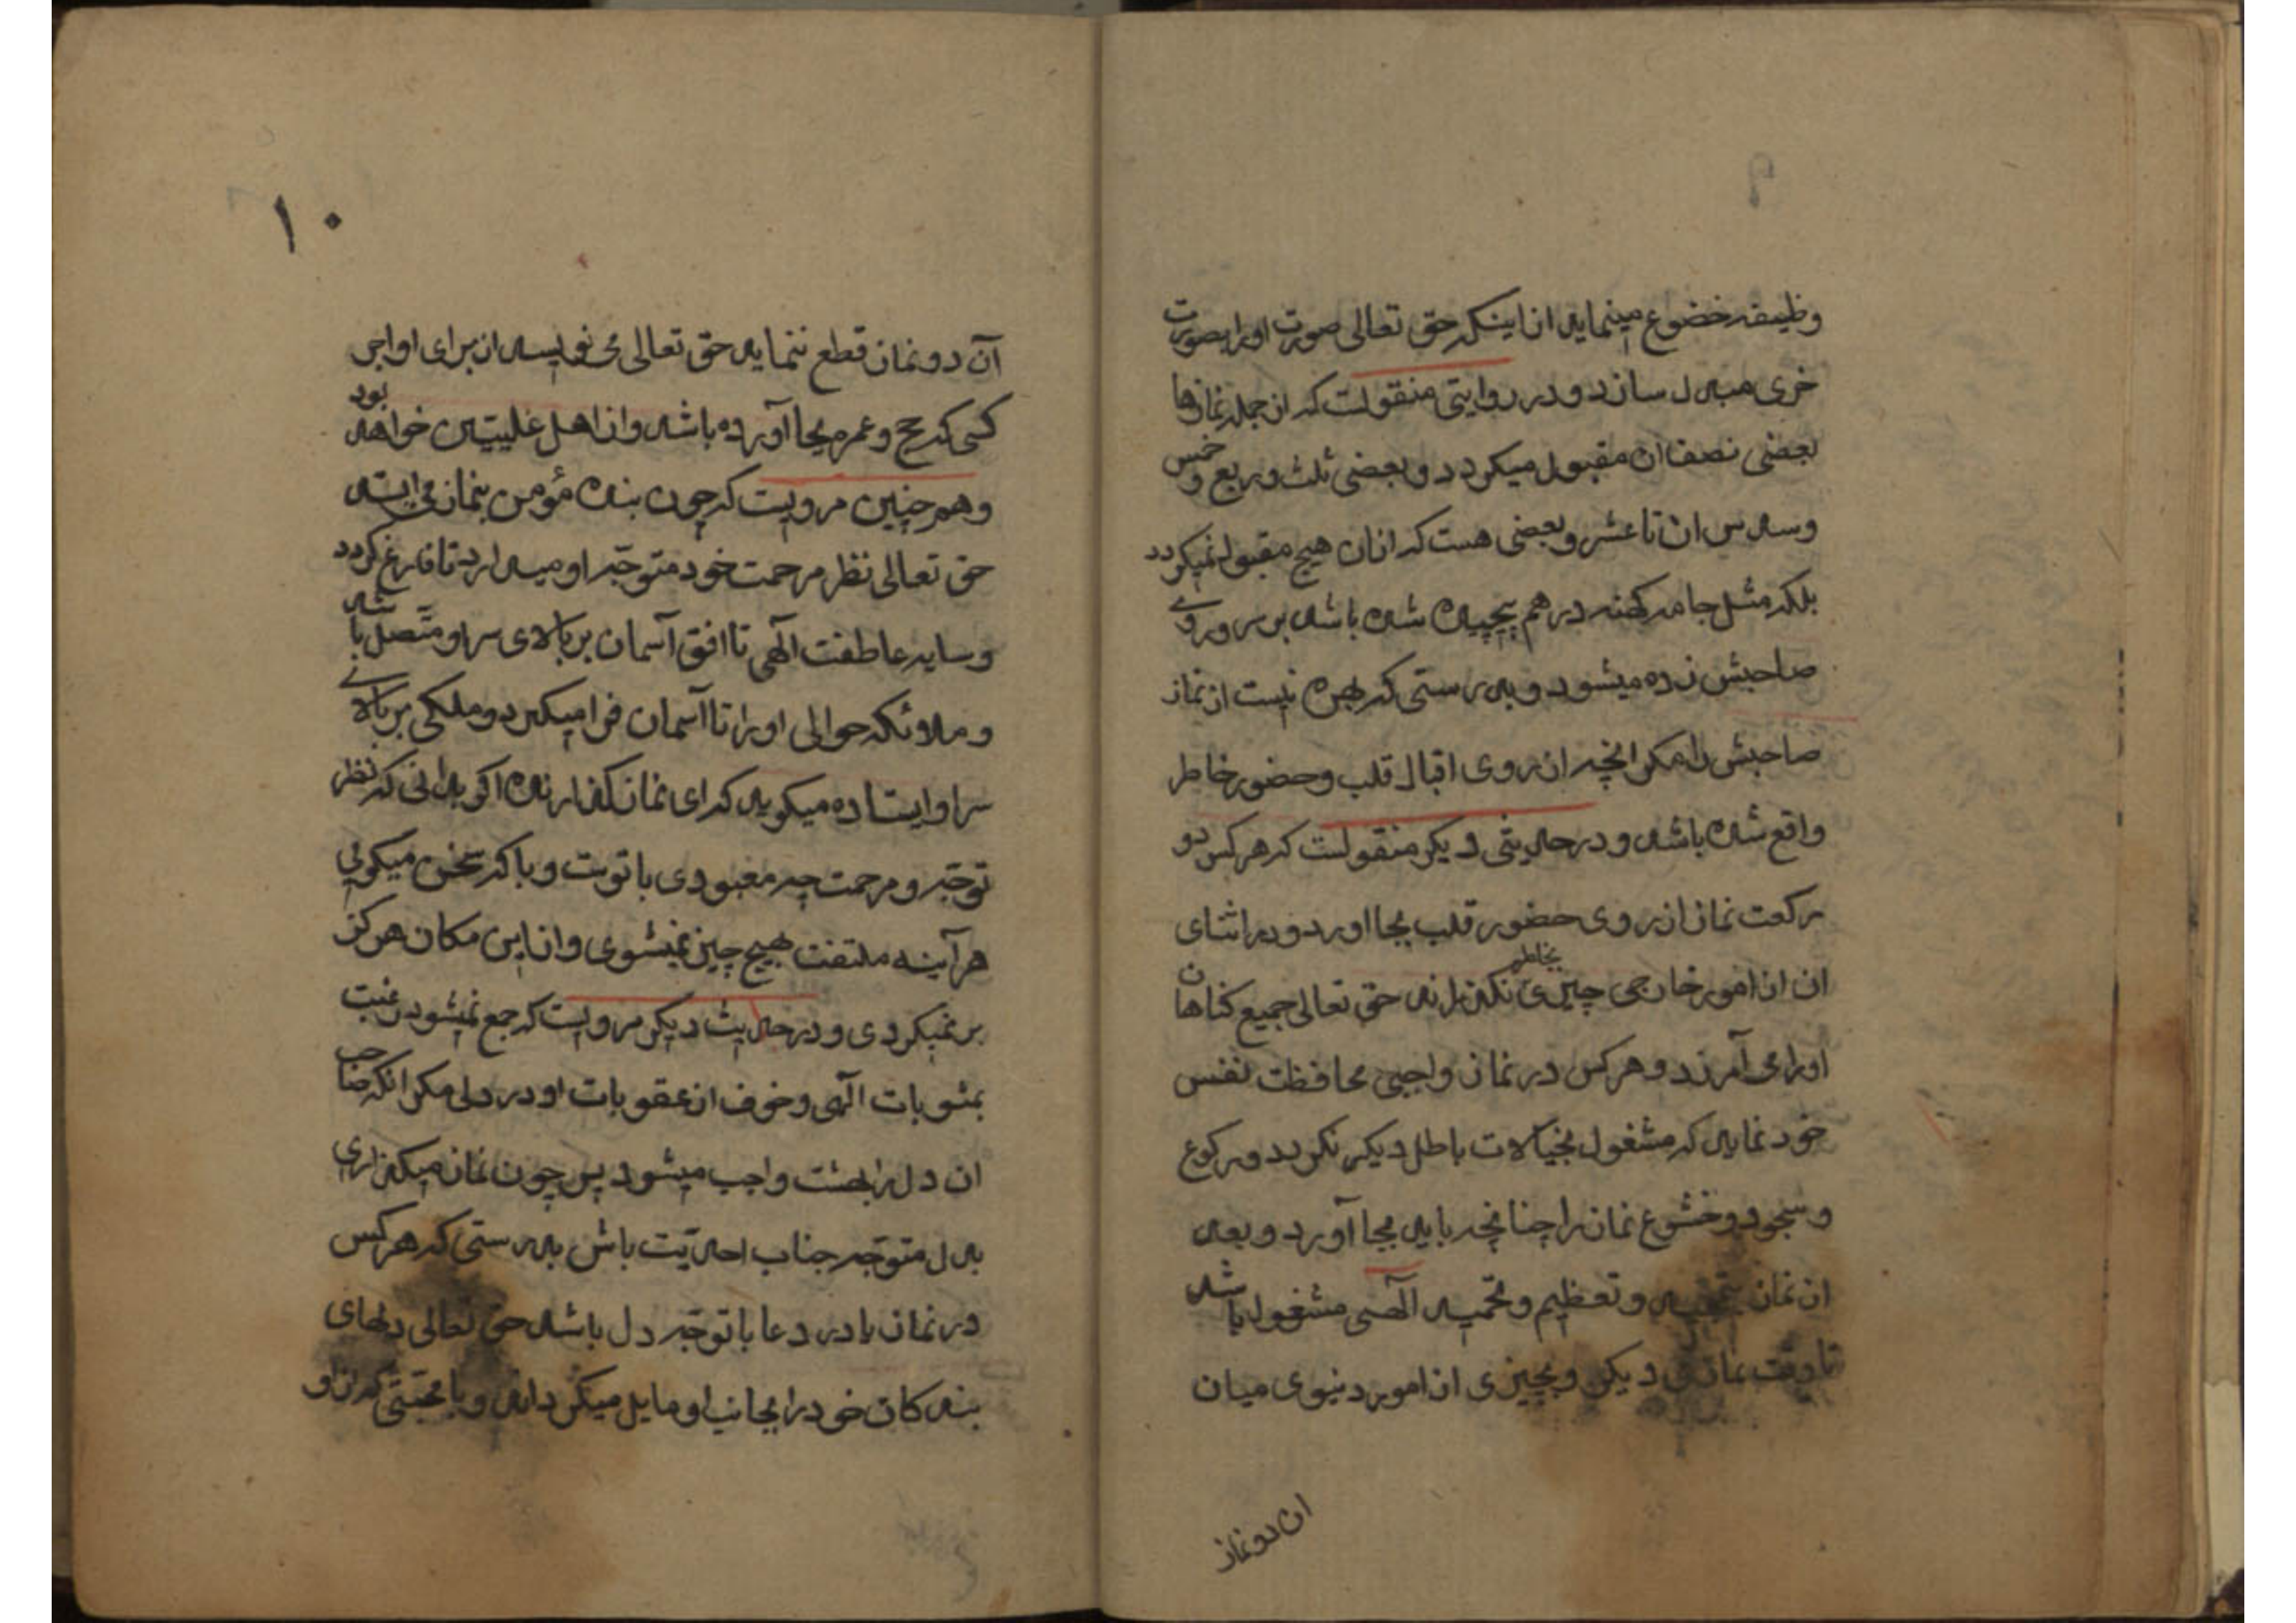 وظیفه خضوع مینماید از اینکه حق تعالی صورت او را بصورت
خری مبدل سازد و در روایتی منقولست که از جمله نمازها
بعضی نصف ان مقبول میکردد و بعضی ثلث و ربع و خمس
و سدس ان تا عشر و بعضی هست که ازان هیچ مقبول نمیکردد
بلکه مثل جامه کهنه درهم پیچیده شده باشد بر سر و روی
صاحبش زده میشود و بدرستی که بهره نیست از نماز
صاحبش را مکر انچه از روی اقبال قلب و حضور خاطر
واقع شده باشد و در حدیثی دیکر منقولست که هر کس دو
رکعت نماز از روی حضور قلب بجا اورد و در اثنای
ان از امور خارجی چیزی بخاطر نکذراند حق تعالی جمیع کناهان
او را می آمرزد و هر کس در نماز واجبی محافظت نفس
خود نماید که مشغول بخیالات باطل دیکر نکردد و رکوع
و سجود و خشوع نماز را چنانچه باید بجا آورد و بعد
از نماز بتمجید و تعظیم و تحمید آلهی مشغول باشد
تا وقت نماز دیکر و بچیزی از امور دنیوی میان
ان دو نماز
۱۰
آن دو نماز قطع ننماید حق تعالی می نویسد از برای او اجر
کسی که حج و عمره بجا آورده باشد و از اهل علیین خواهد بود
و همچنین مرویست که چون بنده مؤمن بنماز می ایستد
حق تعالی نظر مرحمت خود متوجه او میدارد تا فارغ کردد
و سایه عاطفت آلهی تا افق آسمان بر بالای سر او متصل باشد
و ملائکه حوالی او را تا آسمان فرا میکیرد و ملکی بر بالای
سر او ایستاده میکوید که ای نماز کذارنده اکر بدانی که نظر
توجه و مرحمت چه معبودی با تو ست و با که سخن میکوئی
هر آینه ملتفت بهیچ چیز نمیشوی و از این مکان هرکز
بر نمیکردی و در حدیث دیکر مرویست که جمع نمیشود رغبت
بمثوبات آلهی و خوف از عقوبات او در دلی مکر انکه صاحب
ان دل را بهشت واجب میشود پس چون نماز میکذاری
بدل متوجه جناب احدیت باش بدرستی که هر کس
در نماز یا در دعا با توجه دل باشد حق تعالی دلهای
بندکان خود را بجانب او مایل میکرداند و با محبتی که از او